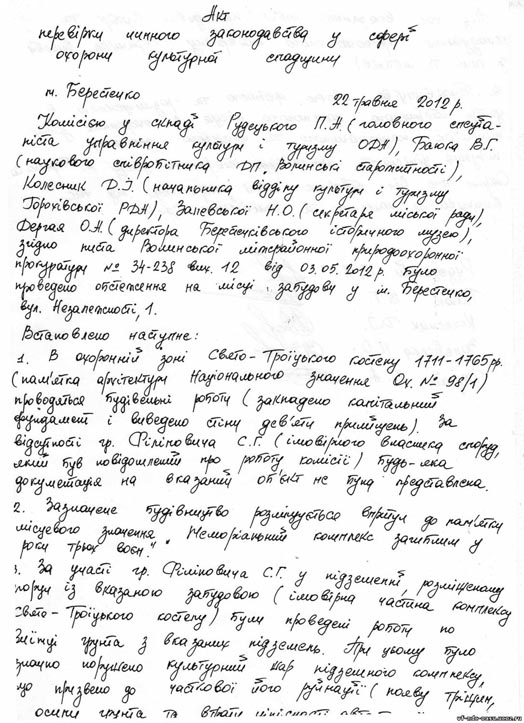 Акт
перевірки чинного законодавства у сфері
охорони культурної спадщини
м. Берестечко 22 травня 2012 р.
Комісією у складі Рудецького П.А (головного спеціа-
ліста управління культури і туризму ОДА), Баюка В.Г.
(наукового співробітника ДП „Волинські старожитності),
Колесник Д.І. (начальника відділу культури і туризму
Горохівської РДА), Залевської Н.О. (секретаря міської ради),
Дергая О.А (директора Берестечківського історичного музею),
згідно листа Волинської міжрайонної природоохоронної
прокуратури № 34-238 вих. 12 від 03.05.2012 р. було
проведено обстеження на місці забудови у м. Берестечко,
вул. Незалежності, 1.
Встановлено наступне:
1. В охоронній зоні Свято-Троїцького костелу 1711-1765 рр.
(пам'ятка архітектури Національного значення Ох. № 98/1)
проводяться будівельні роботи (закладено капітальний
фундамент і виведено стіни дев'яти приміщень). За
відсутності гр. Філіповича С.Г. (імовірного власника споруд,
який був повідомлений про роботу комісії) будь-яка
документація на вказаний об'єкт не була представлена.
2. Зазначене будівництво розміщується впритул до пам'ятки
місцевого значення „Меморіальний комплекс загиблим у
роки трьох воєн".
3. За участі гр. Філіповича С.Г. у підземеллі, розміщеному
поруч із вказаною забудовою (імовірна частина комплексу
Свято-Троїцького костелу) були проведені роботи по
виїмці грунта з вказаних підземель. При цьому було
значно порушено культурний шар підземного комплексу,
що призвело до часткової його руйнації (появу тріщин,
осипи грунта та втрати